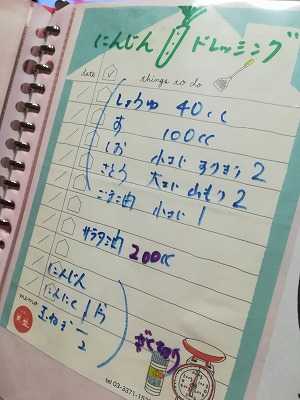 にんじん ドレッシング
date things to do
しょうゆ 40cc
す 100cc
しお 小さじ すりきり 2
さとう 大さじ 山もり 2
ごま油 小さじ 1
サラダ油 200cc
にんじん
にんにく 1片
玉ねぎ 1/2
ざく切り
memo